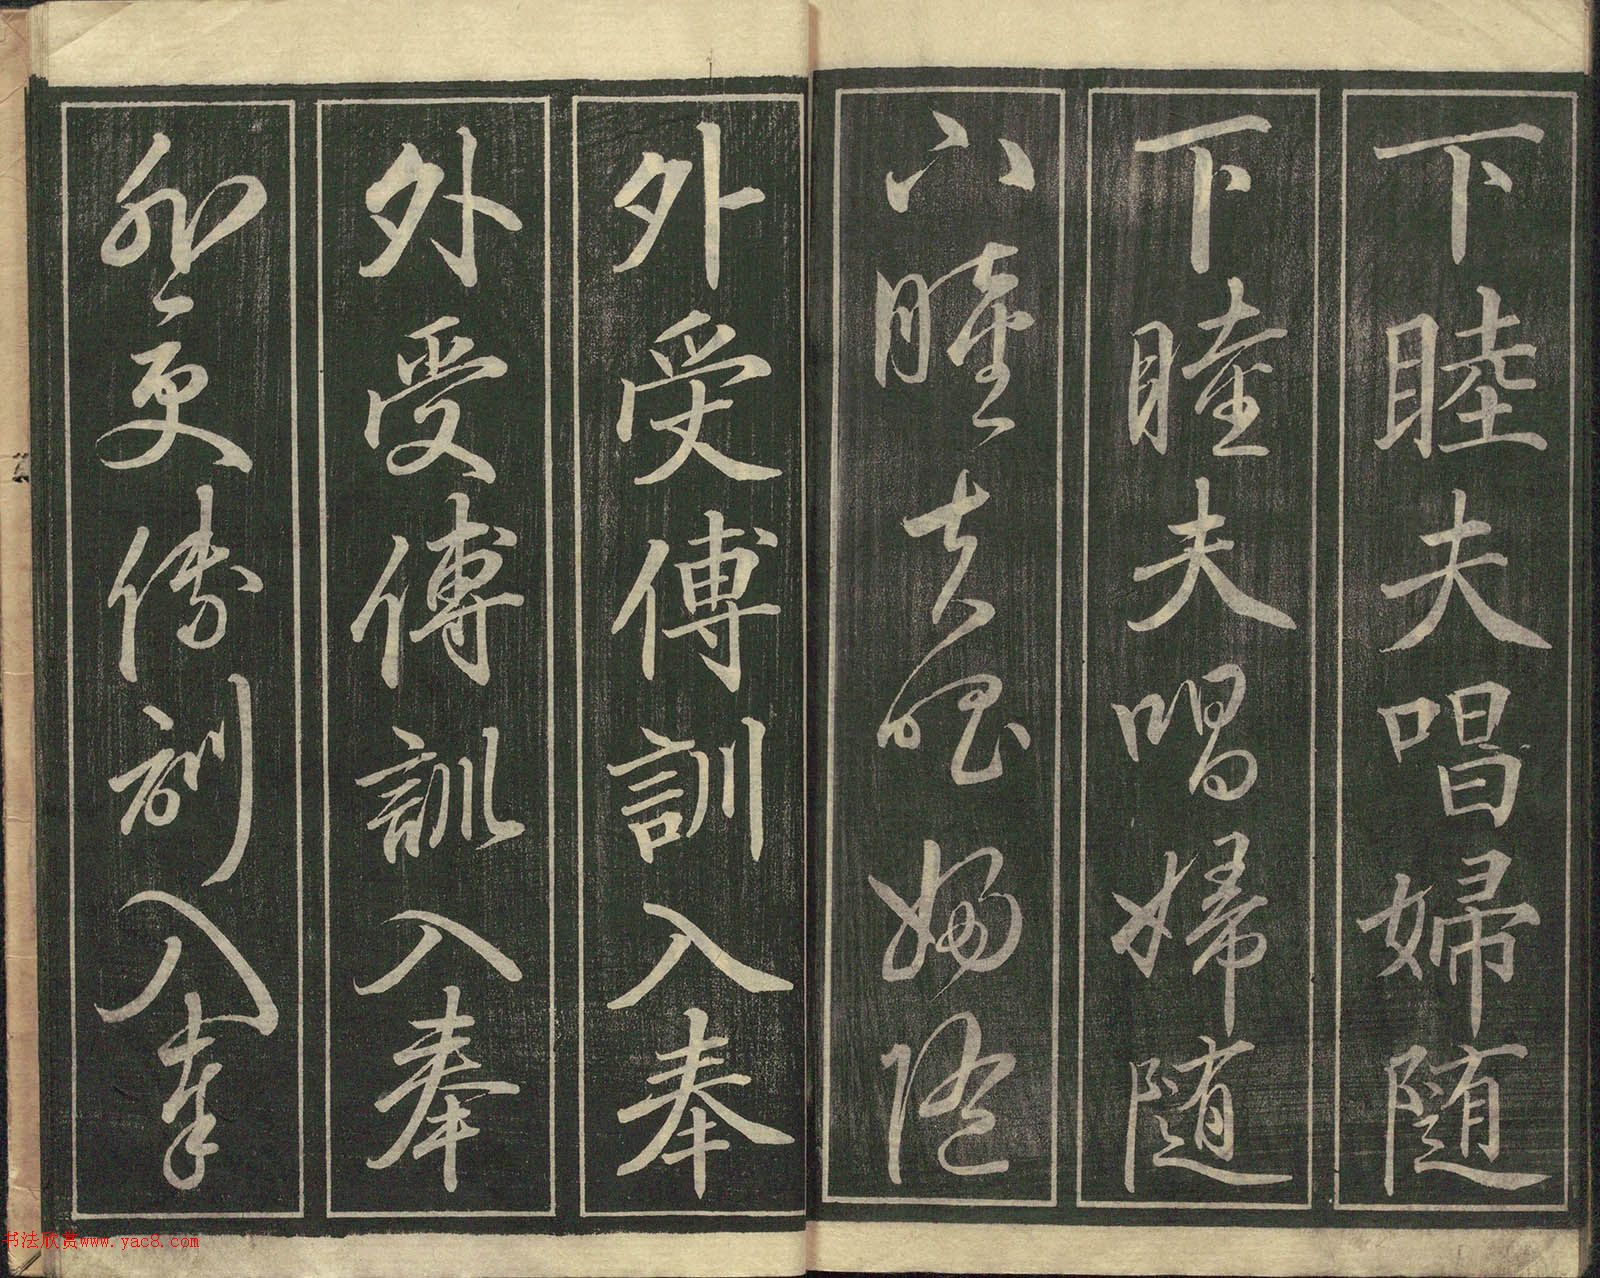 下睦夫唱婦随
下睦夫唱婦随
下睦夫唱婦随
外受傅訓入奉
外受傅訓入奉
外受傅訓入奉
书法欣赏www.yac8.com